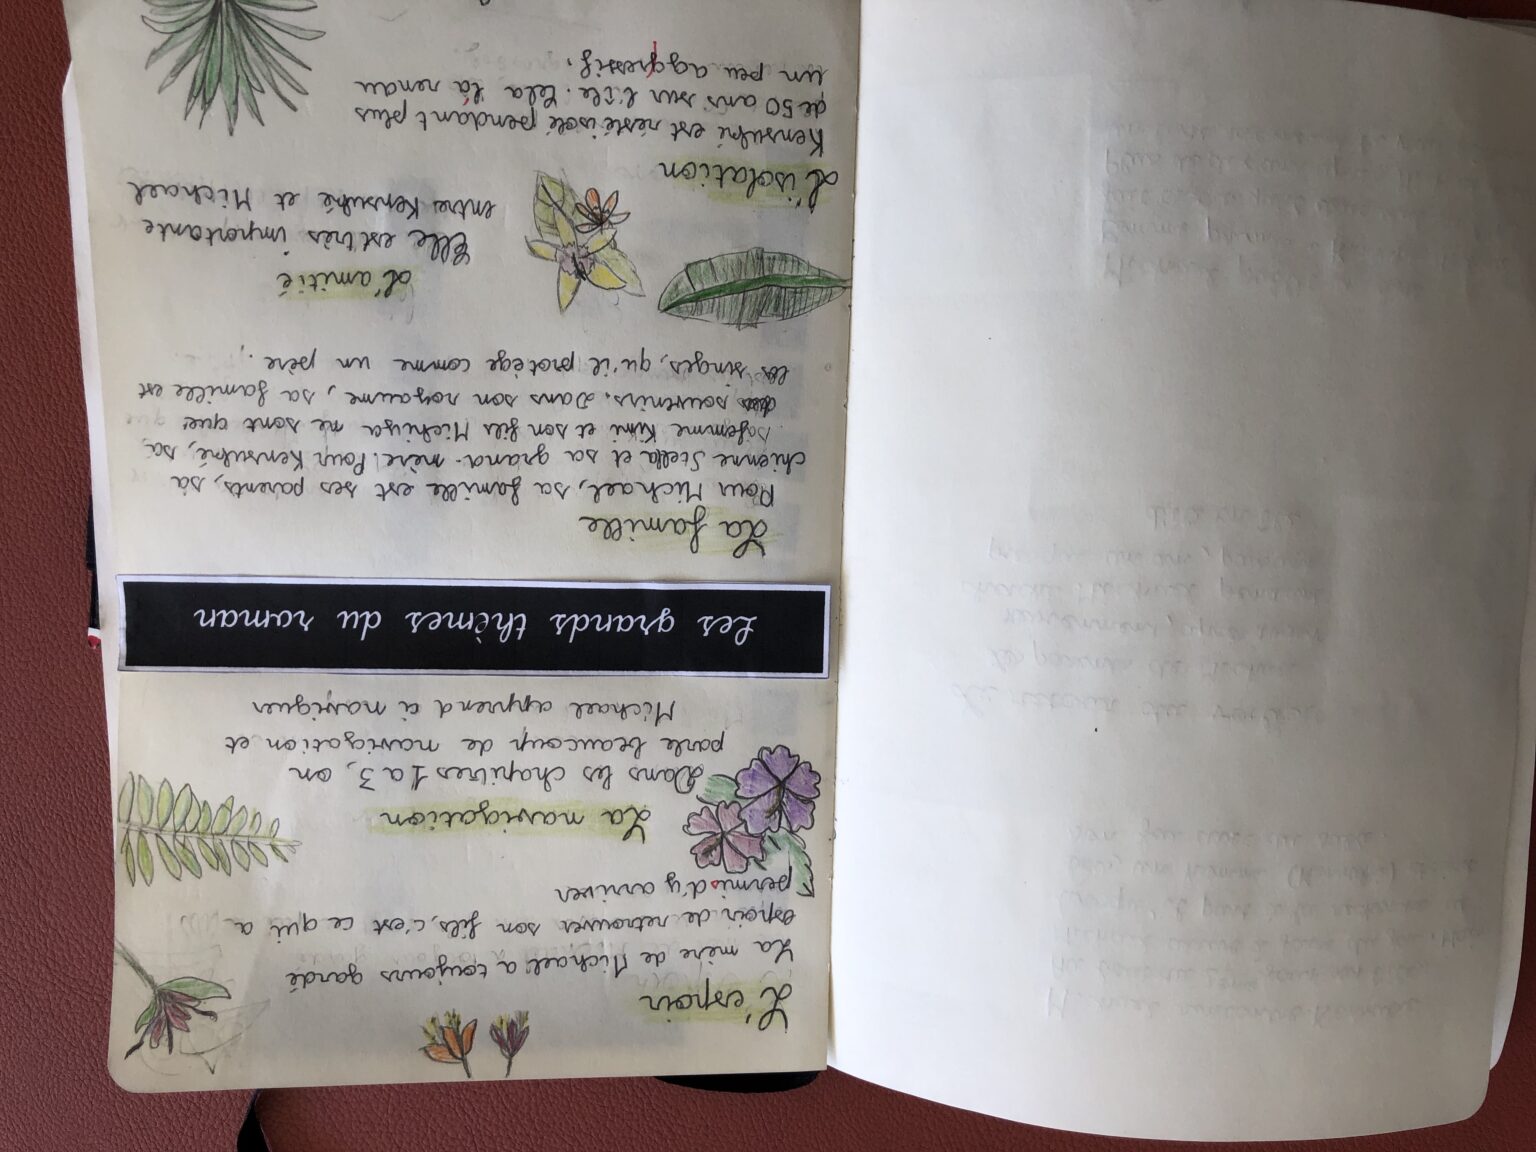 L'espoir
La mère de Michael a toujours gardé
espoir de retrouver son fils, c'est ce qui a
permis d'y arriver
La navigation
Dans les chapitres 1 a 3, on
parle beaucoup de navigation et
Michael apprend à naviguer
Les grands thèmes du roman
La famille
Pour Michael, sa famille est ses parents, sa
chienne Stella et sa grand-mère. Pour Kensuké, sa
femme Kimi et son fils Michiya ne sont que
des souvenirs. Dans son royaume, sa famille est
les singes, qu'il protège comme un père.
L'amitié
Elle est très importante
entre Kensuké et Michael
L'isolation
Kensuké est resté isolé pendant plus
de 50 ans sur l'île. Cela l'a rendu
un peu aggressif.